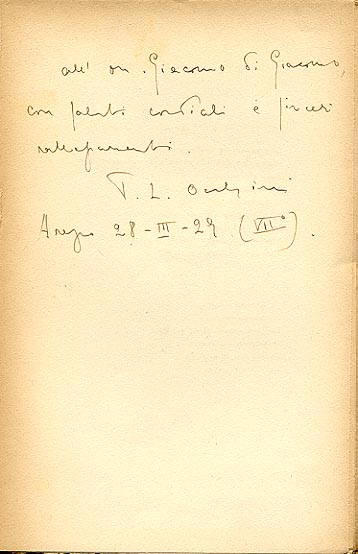 all' on. Giacomo di Giacomo,
con saluti cordiali e sinceri
rallegramenti.
T. L.
Arezzo 28-III-29 (VII°).